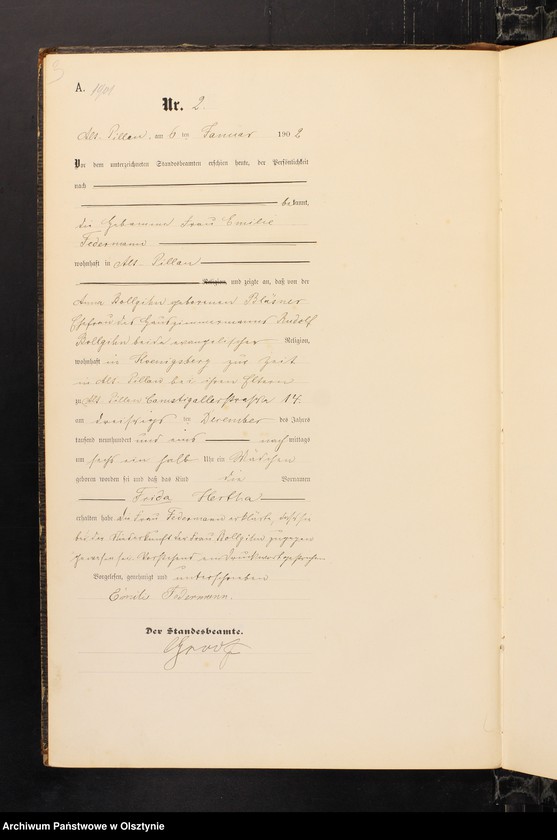 A. 1901
Nr. 2.
Alt-Pillau, am 6 ten Januar 1902
Vor dem unterzeichneten Standesbeamten erschien heute, der Persönlichkeit
nach
bekannt,
die Hebamme Frau Emilie
Federmann
wohnhaft in Alt-Pillau
Religion, und zeigte an, daß von der
Anna Bollgihn geborenen Bläsner
Ehefrau des Hauszimmermanns Rudolf
Bollgihn beide evangelischer Religion,
wohnhaft in Koenigsberg zur Zeit
in Alt-Pillau bei ihren Eltern
zu Alt-Pillau Camstigallerstraße 14.
am dreissigs ten Dezember des Jahres
tausend neunhundert und eins nachmittags
um sechs ein halb Uhr ein Mädchen
geboren worden sei und daß das Kind die Vornamen
Frida Hertha
erhalten habe. Die Frau Federmann erklärte, daß sie
bei der Niederkunft der Frau Bollgihn zugegen
gewesen sei. Vorstehend ein Druckwort gestrichen
Vorgelesen, genehmigt und unterschrieben
Emilie Federmann.
Der Standesbeamte.
Archiwum Państwowe w Olsztynie